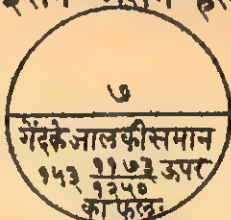 ७
गेंदके जालकी समान
१५३ ११७३/१२५० ऊपर
का फल: